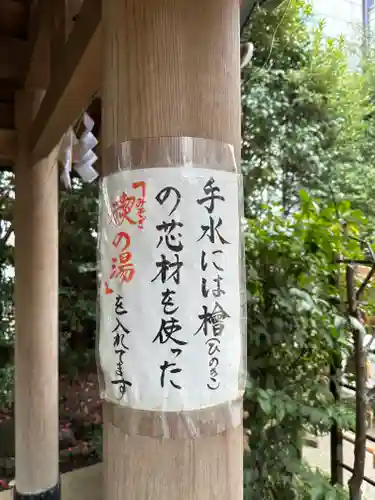 手水には檜(ひのき)
の芯材を使った
「禊(みそぎ)の湯」
を入れてます